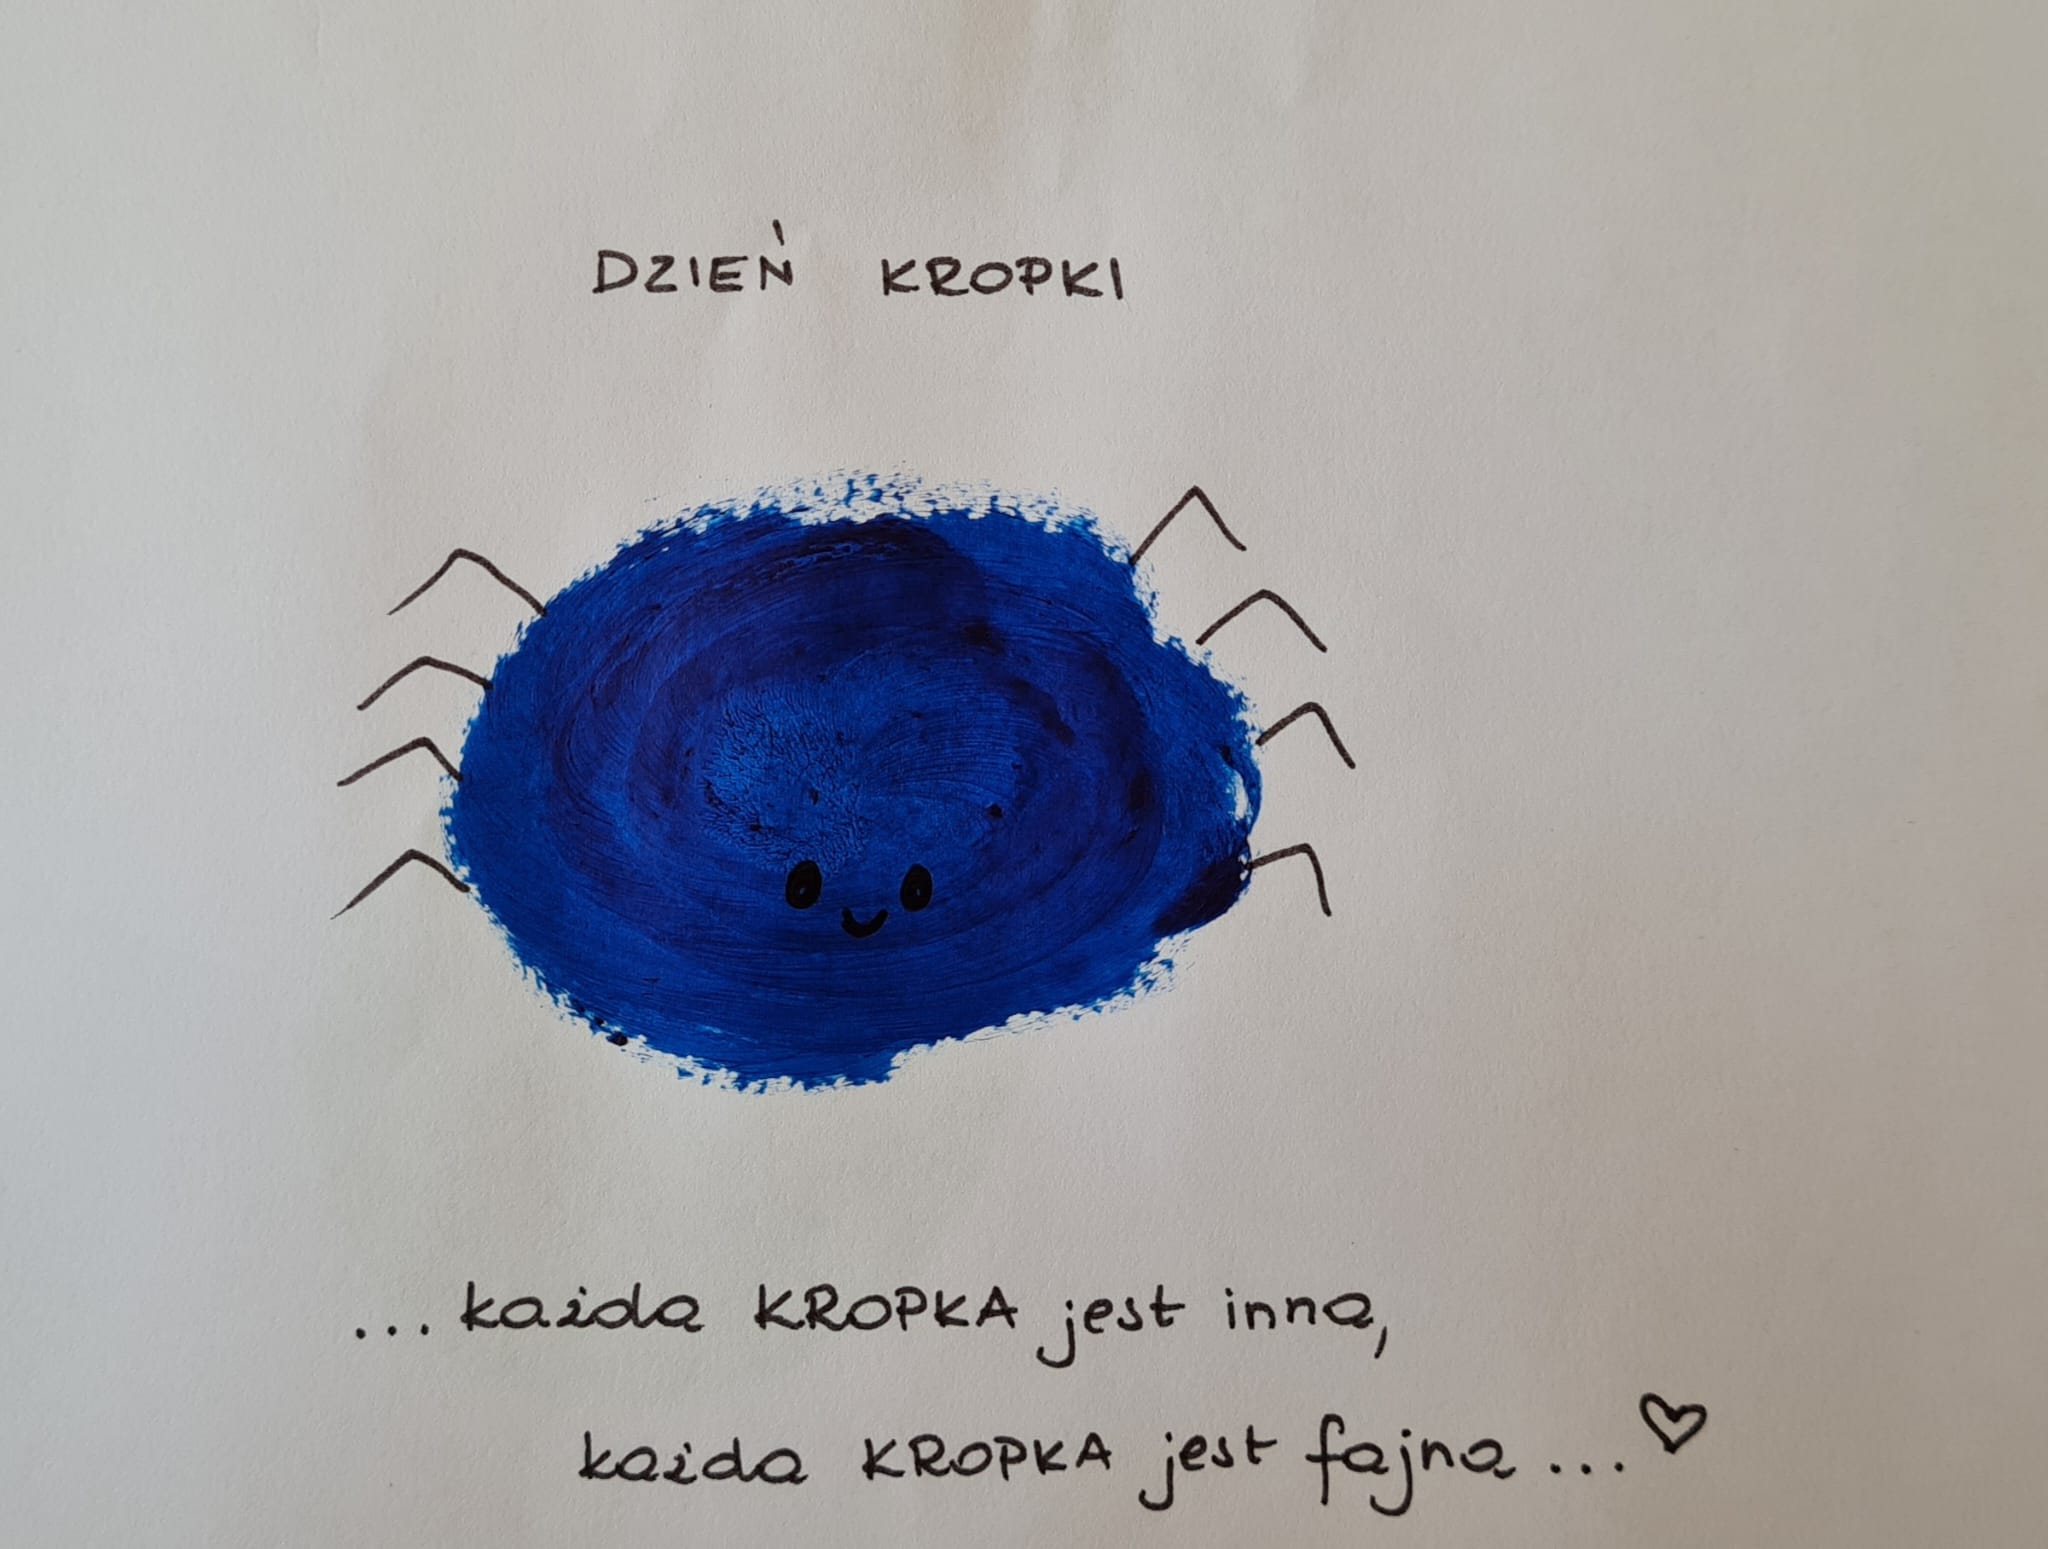 DZIEŃ KROPKI
...każda KROPKA jest inna,
każda KROPKA jest fajna...